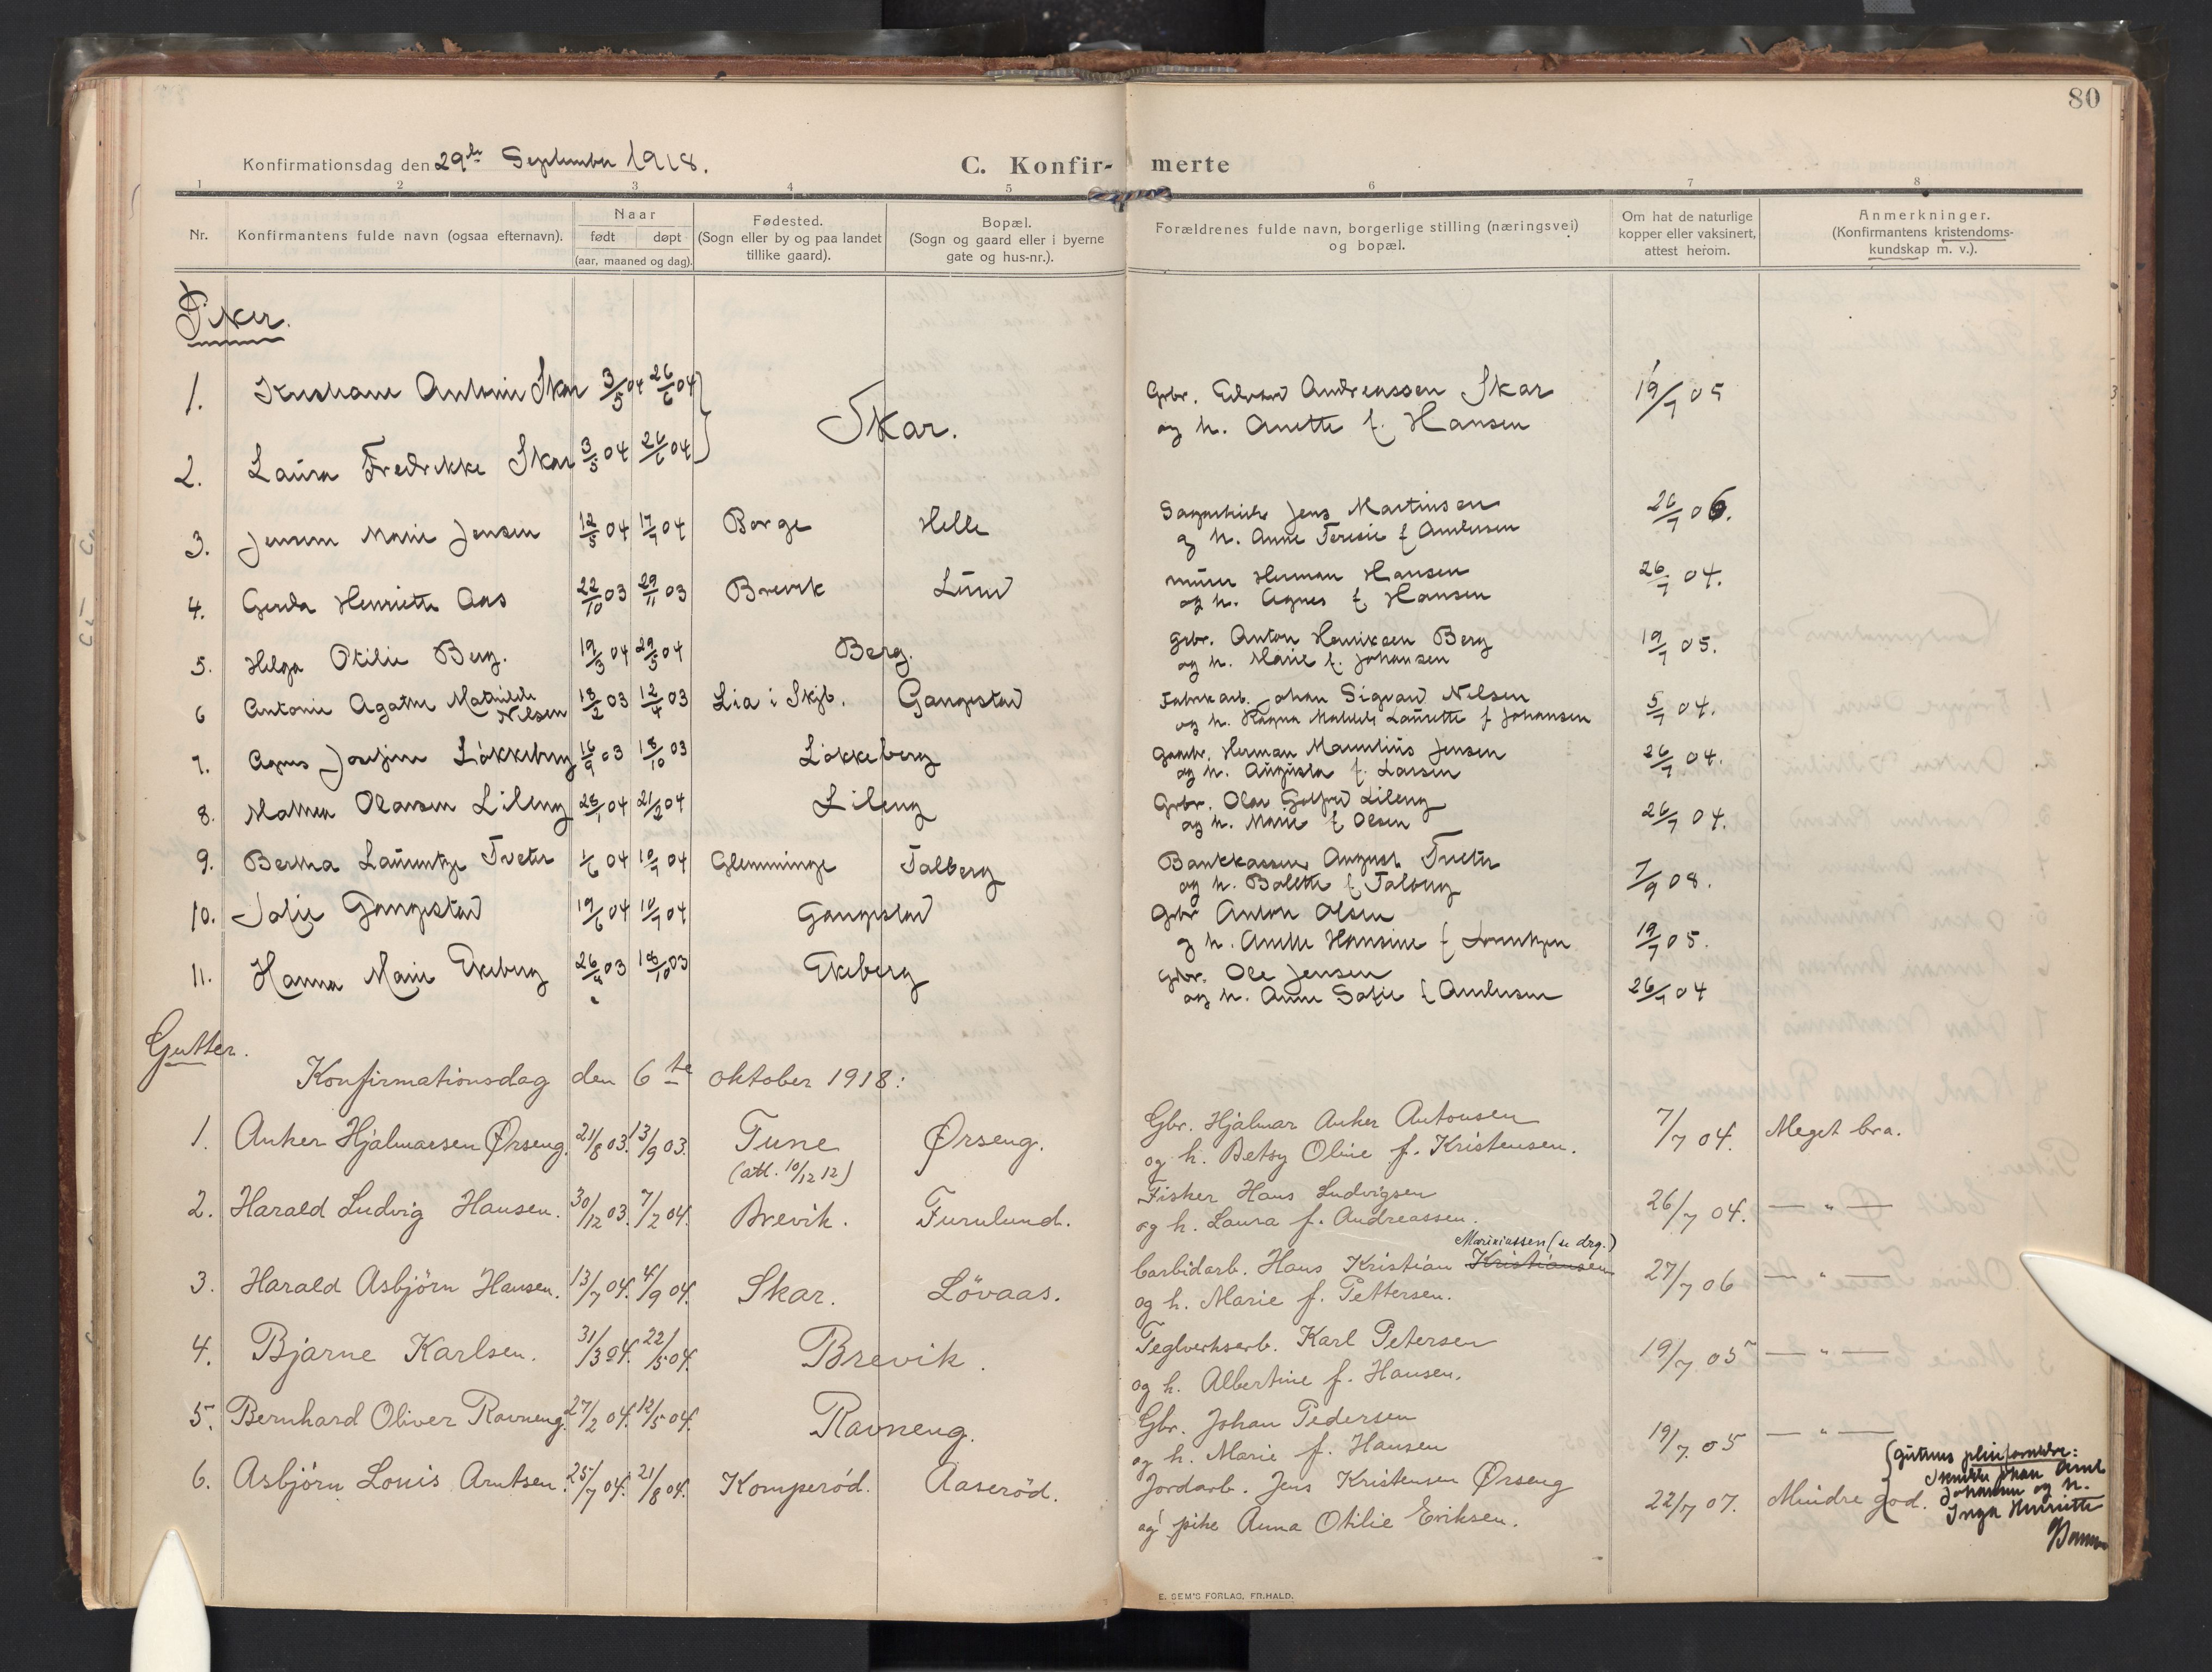 80
Konfirmationsdag den 29de September 1918.
C. Konfir- merte
1 2 3 4 5 6 7 8
Nr.
Konfirmantens fulde navn (ogsaa efternavn).
Naar
født døpt
(aar, maaned og dag).
Fødested.
(Sogn eller by og paa landet
tillike gaard).
Bopæl.
(Sogn og gaard eller i byerne
gate og hus-nr.).
Forældrenes fulde navn, borgerlige stilling (næringsvei)
og bopæl.
Om hat de naturlige
kopper eller vaksinert,
attest herom.
Anmerkninger.
(Konfirmantens kristendoms-
kundskap m. v.).
Piker.
1. Kristiane Antonie Skar 3/5 04 26/6 04 Skar. Gbr. Edvard Andreassen Skar 19/7 05
og h. Anette f. Hansen
2. Laura Fredrikke Skar 3/5 04 26/6 04
3. Jensine Marie Jensen 12/5 04 17/7 04 Borge Helle Jens Martinsen 26/7 06.
og h. Anne Teresie f Andersen
4. Gerda Henriette Aas 22/10 03 29/11 03 Brevik Lund murer Herman Hansen 26/7 04.
og h. Agnes f. Hansen
5. Helga Otilie Berg. 19/3 04 29/5 04 Berg. gbr. Anton Henriksen Berg 19/7 05.
og h. Marie f. Johansen
6 Antonie Agathe Mathilde Nilsen 18/2 03 12/4 03 Lia i Skjb. Gangestad Fabrikarb. Johan Sigvard Nilsen 5/7 04.
og h. Ragna Mathilde Laurette f Johansen
7. Agnes Josefine Løkkeberg 16/9 03 18/10 03 Løkkeberg Gaardbr. Herman Mauritius Jensen 26/7 04.
og h. Augusta f. Larsen
8. Mathea Olavsen Lileng 28/1 04 21/2 04 Lileng Gbr. Olav Gotfred Lileng 26/7 04.
og h. Marie f Olsen
9. Bertha Lauentze Tveter 1/6 04 10/7 04 Glemminge Talberg Bankkasserer August Tveter 7/9 08.
og h. Bolette f Talberg
10. Sofie Gangestad 19/6 04 10/7 04 Gangestad Gbr Anton Olsen 19/7 05.
og h. Anette Hansine f Lorentzen
11. Hanna Marie Ekeberg 26/8 03 18/10 03 Ekeberg Gbr. Ole Jensen 26/7 04
og h. Anne Sofie f Andersen
Gutter.
Konfirmationsdag den 6te oktober 1918:
1. Anker Hjalmarsen Ørseng. 21/8 03. 13/9 03. Tune Ørseng. Gbr. Hjalmar Anker Antonsen 7/7 04. Meget bra.
(att. 10/12 12) og h. Betsy Oline f. Kristensen.
2. Harald Ludvig Hansen. 30/12 03. 7/2 04. Brevik. Furulund. Fisker Hans Ludvigsen 26/7 04. — " —
og h. Laura f. Andreassen.
Mariniussen (se drg.)
3. Harald Asbjörn Hansen. 13/7 04. 4/9 04. Skar. Lövaas. Carbidarb. Hans Kristian Kristiansen 27/7 06 — " —
og h. Marie f. Pettersen.
4. Bjarne Karlsen. 31/3 04. 22/5 04. Brevik. Teglverksarb. Karl Petersen 19/7 05 — " —
og h. Albertine f. Hansen.
5. Bernhard Oliver Ravneng. 27/2 04. 12/5 04. Ravneng. Gbr. Johan Pedersen 19/7 05 — " —
og h. Marie f. Hansen
6. Asbjörn Louis Arntsen. 25/7 04. 21/8 04. Komperöd. Aaseröd. Jordarb. Jens Kristensen Ørseng 22/7 07. Mindre god.
og pike Anna Otilie Eriksen.
Guttens pleieforældre:
Johan Arnt
Johansen og h.
Inga Henriette
E. SEM'S FORLAG, FR.HALD.